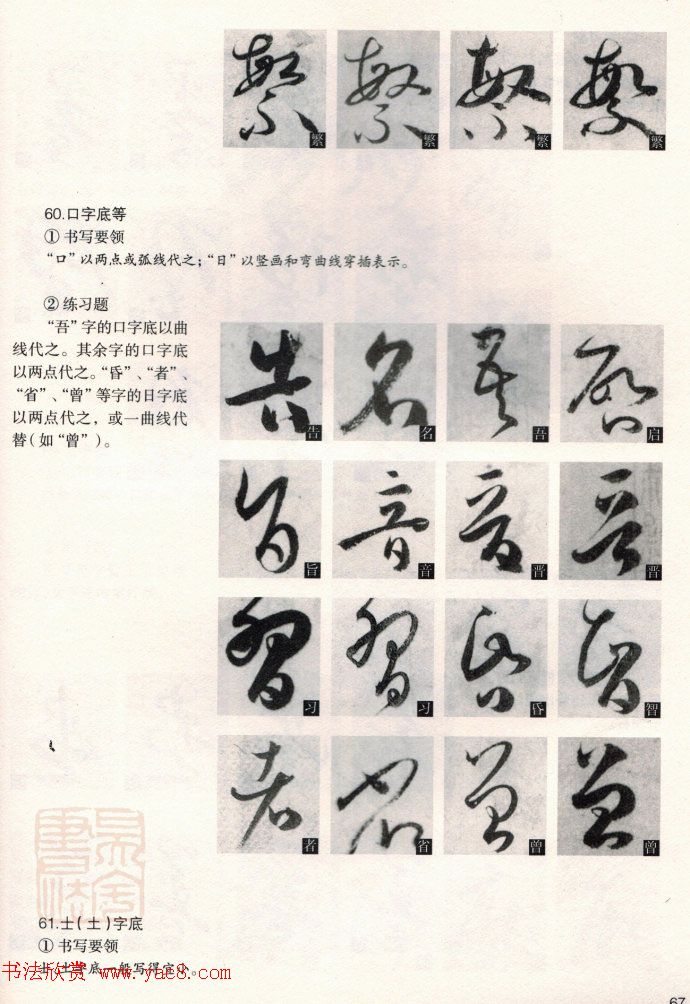 繁 繁 繁 繁
60.口字底等
① 书写要领
“口”以两点或弧线代之;“日”以竖画和弯曲线穿插表示。
② 练习题
“吾”字的口字底以曲
线代之。其余字的口字底
以两点代之。“昏”、“者”、
“省”、“曾”等字的日字底
以两点代之，或一曲线代
替(如“曾”)。
告 名 吾 启
旨 音 晋 晋
习 习 昏 智
者 省 曾 曾
61.士(土)字底
① 书写要领
书法欣赏 www.yac8.com
67